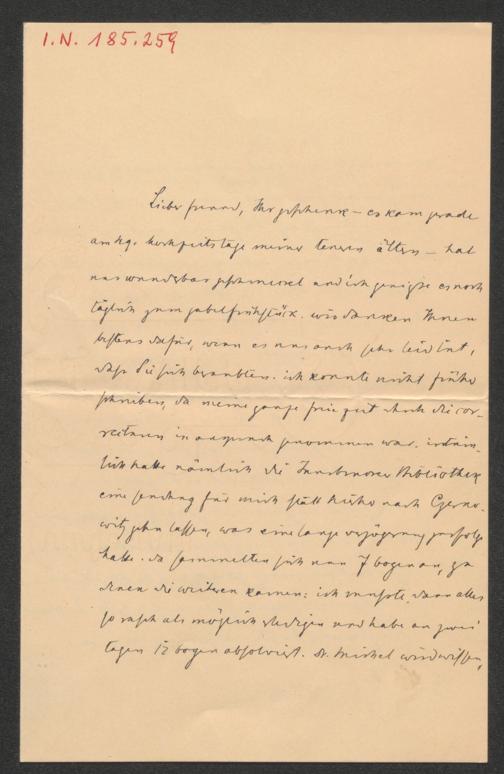 I.N. 185.259
Lieber freund, Ihr geschenk – es kam gerade
am hochzeitstage meiner teuren ältern – hat
uns wunderbar geschmeckt und ich geniesse es noch
täglich zum gabelfrühstück. wir danken Ihnen
bestens dafür, wenn es uns auch sehr leid tut,
dass Sie sich beraubten. ich konnte nicht früher
schreiben, da meine ganze freie zeit durch die cor-
recturen in anspruch genommen war.
lich hatte nämlich die Innsbrucker Bibliothek
eine sendung für mich statt hieher nach Czerno-
witz gehn lassen, was eine lange verzögerung zur folge
hatte. da sammelten sich nun 7 bogen an, zu
denen die weiteren kamen: ich musste dann alles
so rasch als möglich erledigen und habe an zwei
tagen 12 bogen absolviert. dr. Michel wird wissen,